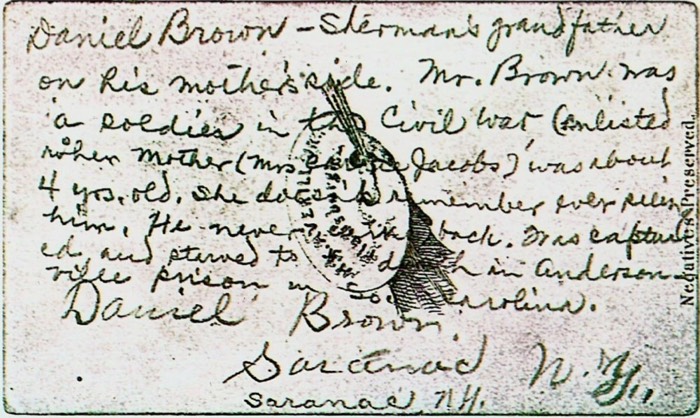 Daniel Brown - Sherman's grandfather
on his mother's side. Mr. Brown was
a soldier in the Civil War (enlisted
when Mother (Mrs Jacobs) was about
4 yrs. old. She doesn't remember ever seeing
him. He never back. Was captur
ed, and starved to death in Anderson-
ville prison in So. Carolina.
Daniel Brown
Saranac N.Y.
Saranac N.Y.
Negatives Preserved.